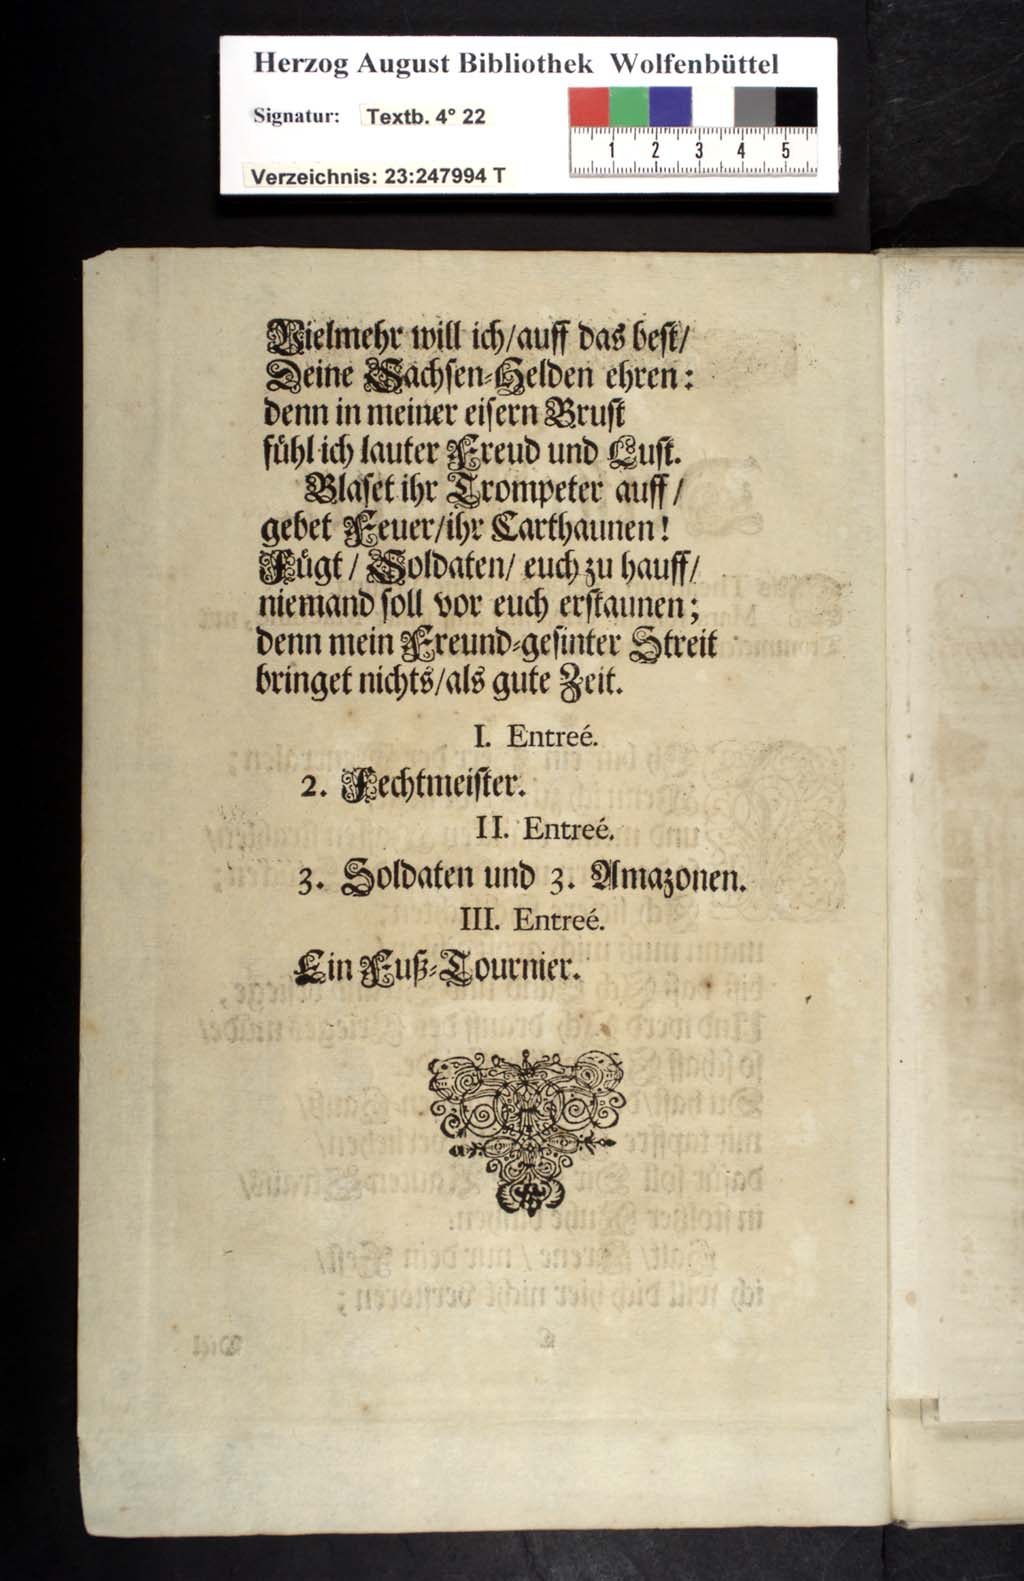 Herzog August Bibliothek Wolfenbüttel
Signatur: Textb. 4° 22
Verzeichnis: 23:247994 T
1 2 3 4 5
Vielmehr will ich/auff das best/
Deine Sachsen-Helden ehren:
denn in meiner eisern Brust
fühl ich lauter Freud und Lust.
Blaset ihr Trompeter auff/
gebet Feuer/ihr Carthaunen!
Fügt/ Soldaten/ euch zu hauff/
niemand soll vor euch erstaunen;
denn mein Freund-gesinter Streit
bringet nichts/als gute Zeit.
I. Entreé.
2. Fechtmeister.
II. Entreé.
3. Soldaten und 3. Amazonen.
III. Entreé.
Ein Fuß-Tournier.